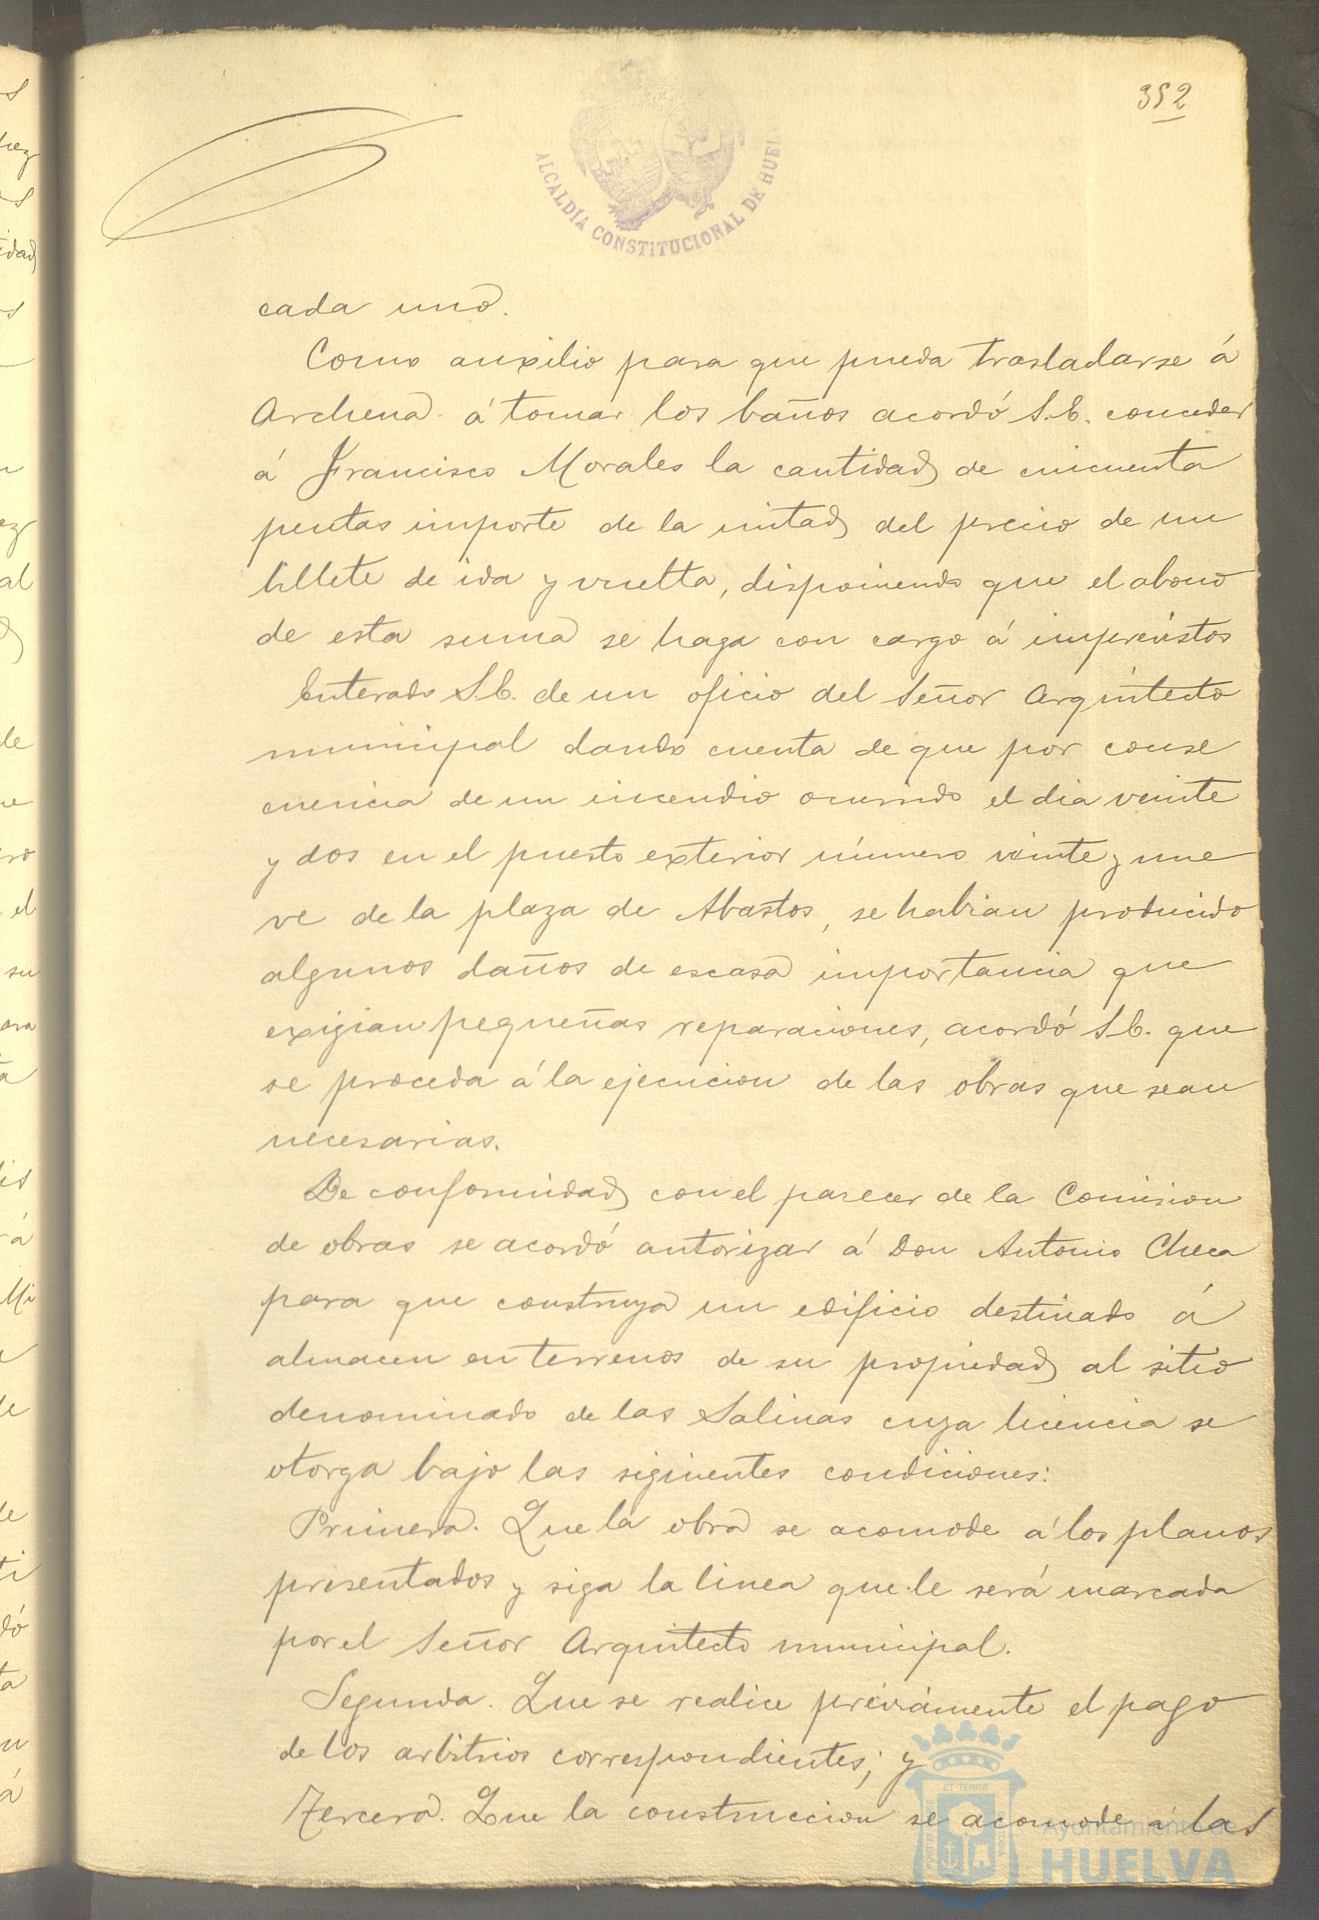 352
ALCALDÍA CONSTITUCIONAL DE HUEL
cada uno.
Como auxilio para que pueda trasladarse á
Archena á tomar los baños acordó S.E. conceder
á Francisco Morales la cantidad de cincuenta
pesetas importe de la mitad del precio de un
billete de ida y vuelta, disponiendo que el abono
de esta suma se haga con cargo á imprevistos
Enterado S.E. de un oficio del Señor Arquitecto
municipal dando cuenta de que por conse
cuencia de un incendio ocurrido el dia veinte
y dos en el puesto exterior número veinte y nue
ve de la plaza de Abastos, se habian producido
algunos daños de escasa importancia que
exigian pequeñas reparaciones, acordó S.E. que
se proceda á la ejecucion de las obras que sean
necesarias.
De conformidad con el parecer de la Comision
de obras se acordó autorizar á Don Antonio Checa
para que construya un edificio destinado á
almacen en terrenos de su propiedad al sitio
denominado de las Salinas cuya licencia se
otorga bajo las siguientes condiciones:
Primera. Que la obra se acomode á los planos
presentados y siga la linea que le será marcada
por el Señor Arquitecto municipal.
Segunda. Que se realice préviamente el pago
de los arbitrios correspondientes; y
Tercera. Que la construccion se acomode á las
Ayuntamiento de
HUELVA